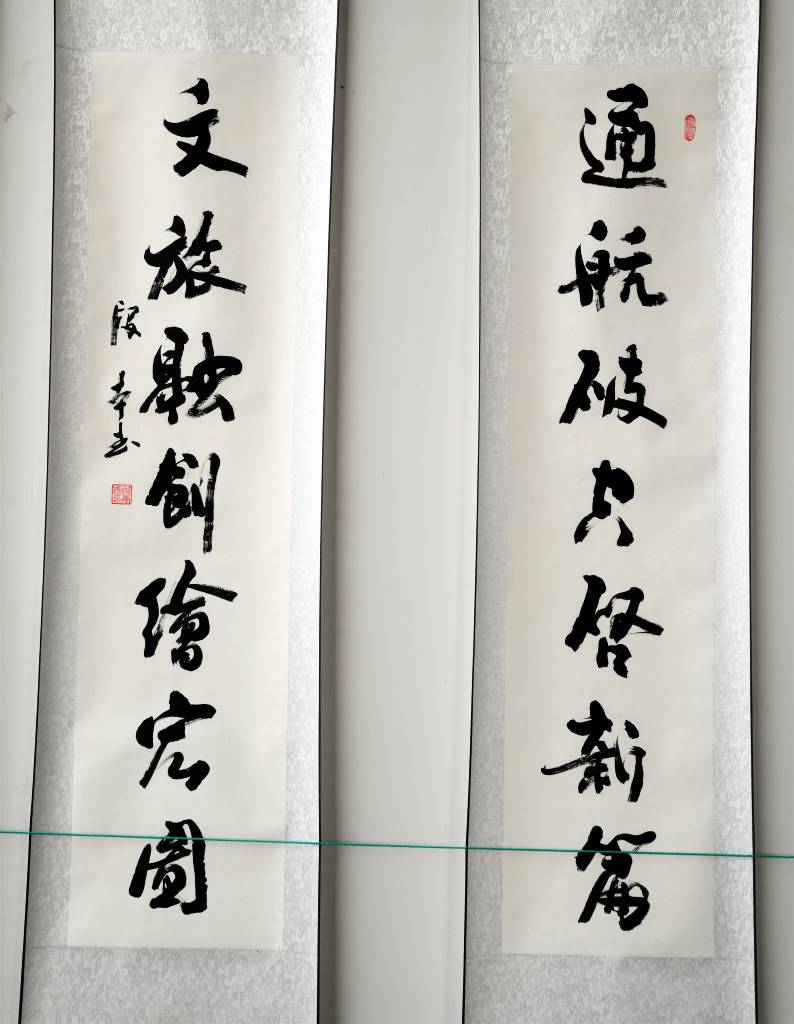 通航破穴啓新篇
文旅融創繪宏圖
段
书